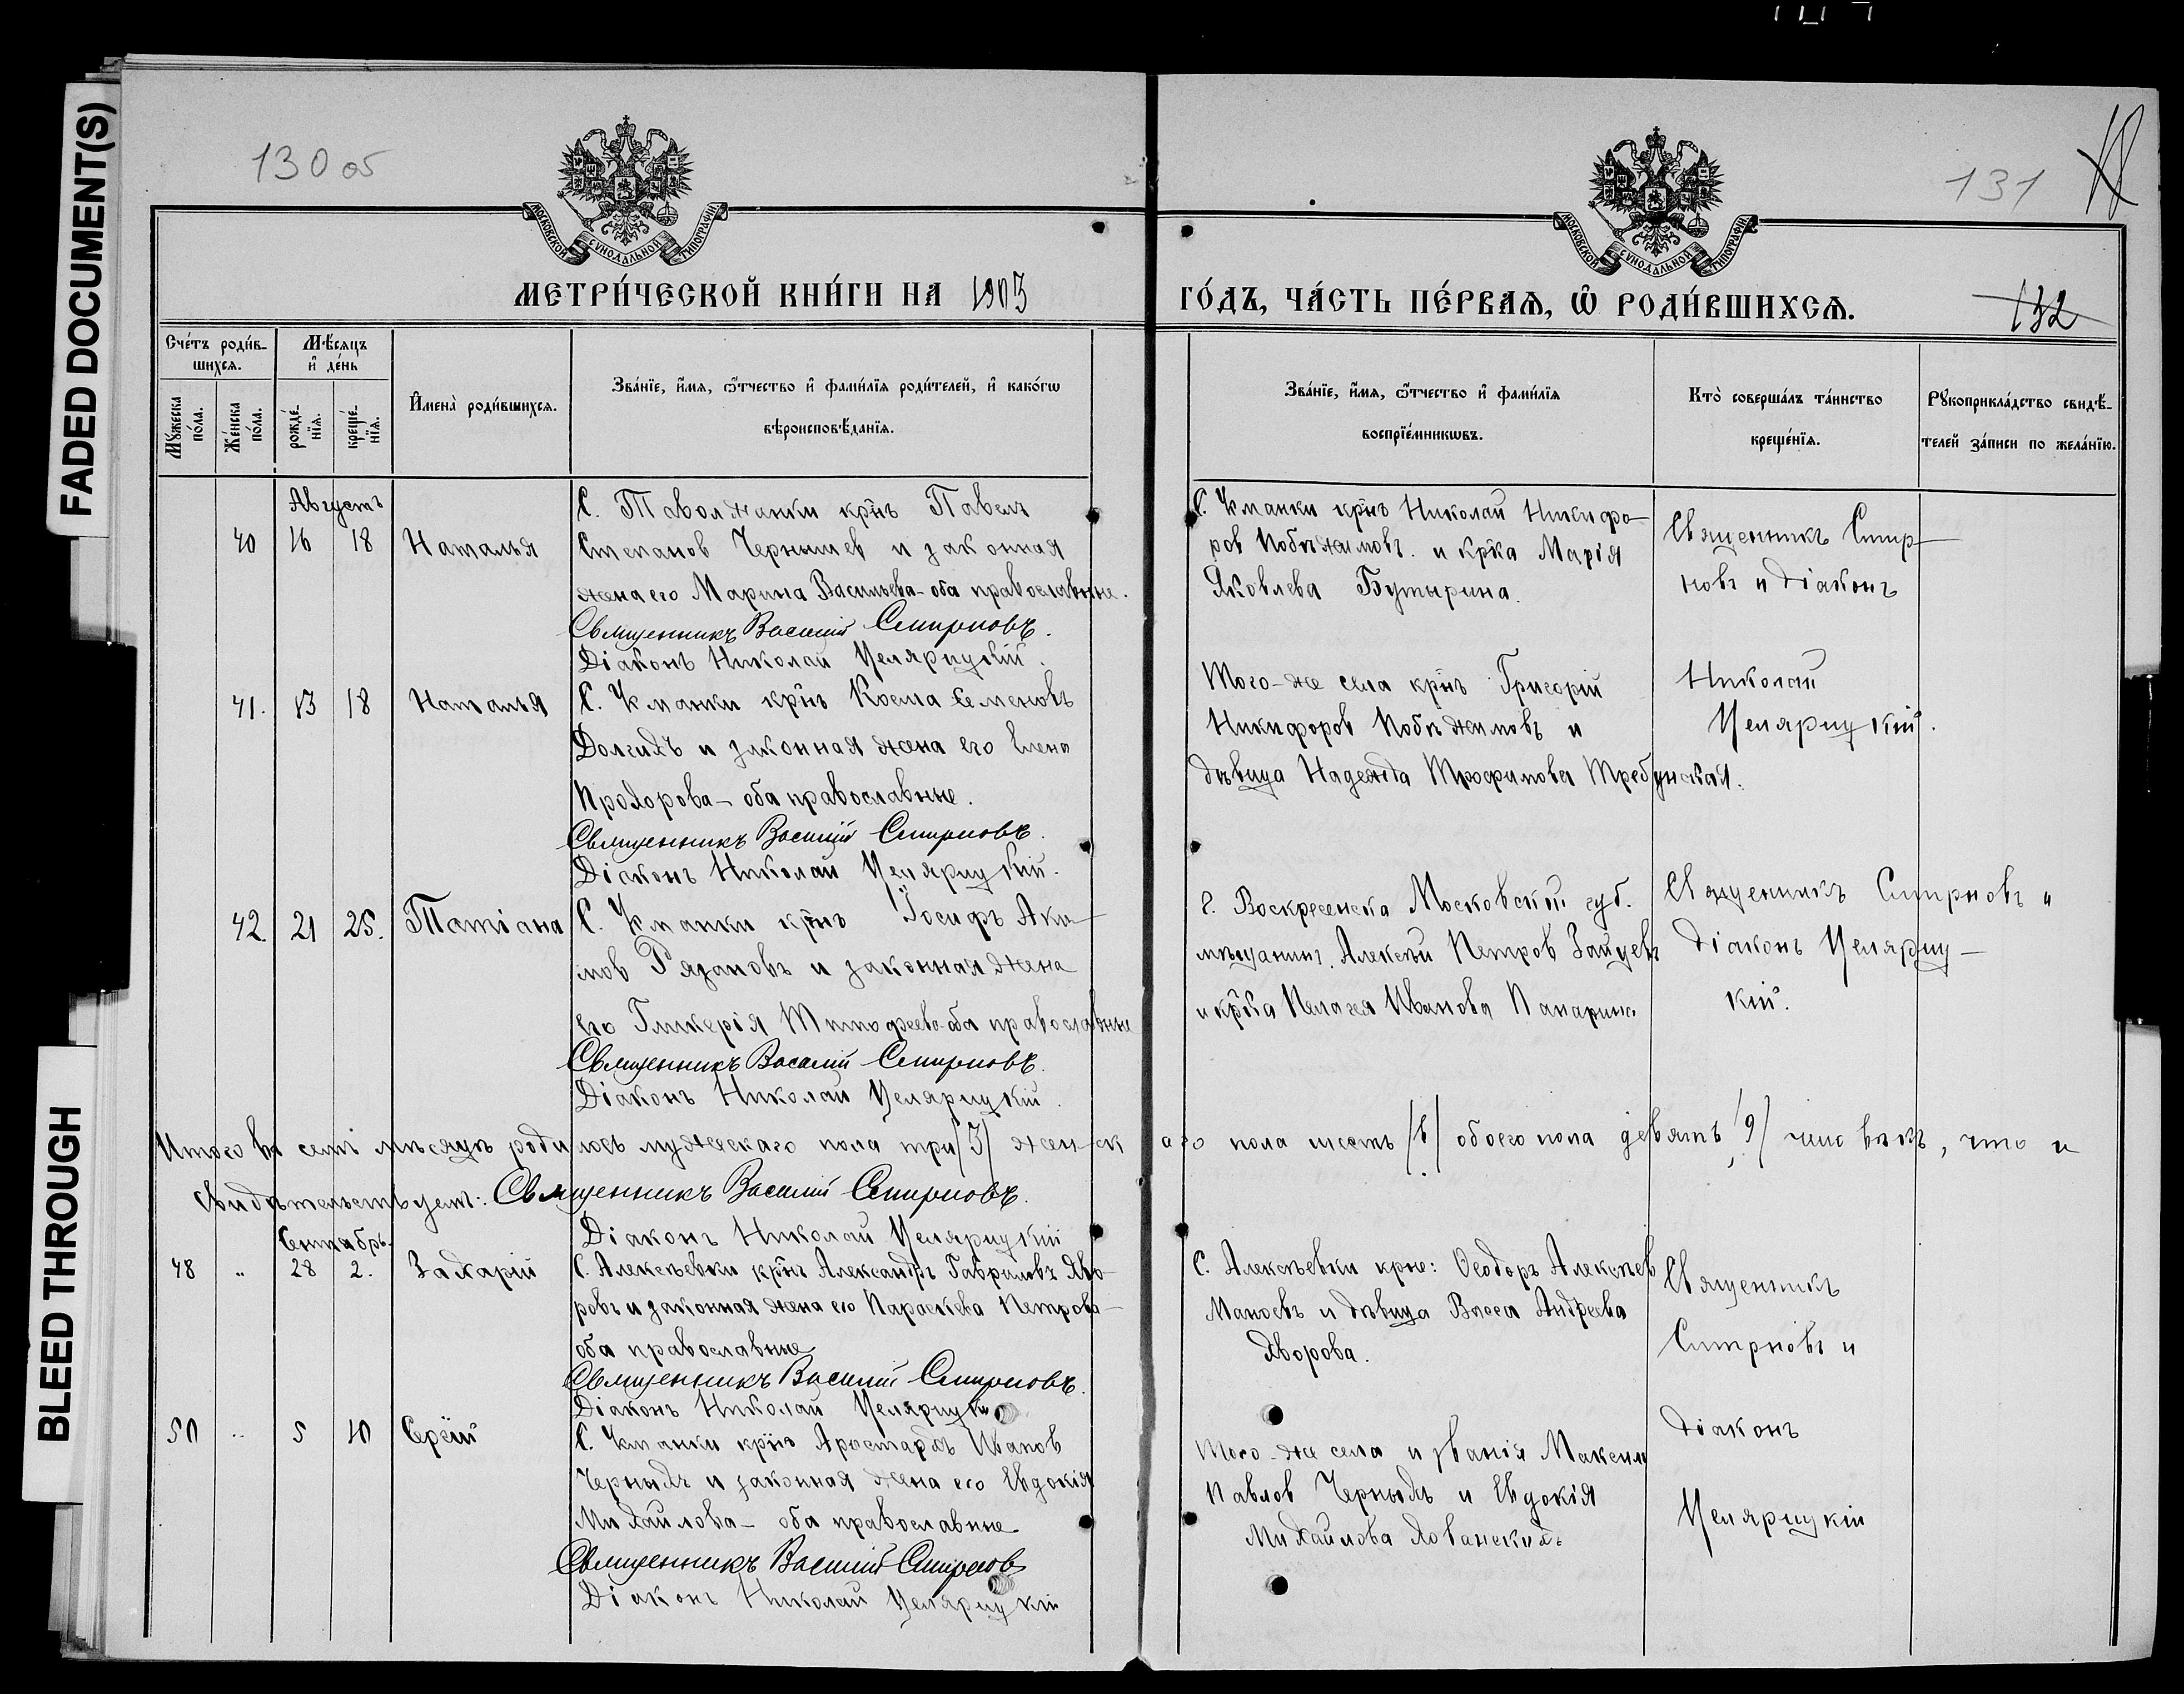 FADED DOCUMENT(S)
BLEED THROUGH
130 об
131
132
МОСКОВСКОЙ СѴНОДАЛЬНОЙ ТИПОГРАФІИ
МОСКОВСКОЙ СѴНОДАЛЬНОЙ ТИПОГРАФІИ
МЕТРИ́ЧЕСКОЙ КНИ́ГИ НА 1903
ГО́ДЪ, ЧА́СТЬ ПЕ́РВАѦ, Ѡ҆ РОДИ́ВШИХСѦ.
Сче́тъ роди́в-
шихсѧ.
Мѣ́сѧцъ
и҆ де́нь
Мꙋжеска по́ла.
Же́нска по́ла.
рожде́-
нїѧ.
креще́-
нїѧ.
И҆мена̀ роди́вшихсѧ.
Зва́нїе, и҆́мѧ, ѻ҆́тчество и҆ фамѝлїѧ роди́телей, и҆ како́гѡ
вѣроисповѣ́данїѧ.
Зва́нїе, и҆́мѧ, ѻ҆́тчество и҆ фами́лїѧ
воспрїе́мникѡвъ.
Кто̀ соверша́лъ та́инство
креще́нїѧ.
Рꙋкоприкла́дство свидѣ́-
телей за́писи по жела́нїю.
Августъ
40 16 18 Наталья
С. Таволжанки крнъ Павелъ
Степанов Чернышев и законная
жена его Марина Васильева - оба православные.
Священникъ Василій Смирновъ.
Діаконъ Николай Целярицкій.
С. Уманки крнъ Николай Никифо-
ров Побѣжимовъ и крка Марія
Яковлева Бутырина.
Священникъ Смир-
новъ и діаконъ
41. 13 18 Наталья
С. Уманки крнъ Косма Семеновъ
Долгихъ и законная жена его Елена
Прохорова - оба православные.
Священникъ Василій Смирновъ.
Діаконъ Николай Целярицкій.
Того-же села крнъ Григорій
Никифоров Побѣжимовъ и
дѣвица Надежда Трофимова Требунская.
Николай
Целярицкій.
42. 21 25. Татіана
С. Уманки крнъ Іосифъ Аки-
мов Рязановъ и законная жена
его Гликерія Тимофеева - оба православные
Священникъ Василій Смирновъ.
Діаконъ Николай Целярицкій.
г. Воскресенска Московской губ.
мѣщанинъ Алексѣй Петров Зайцевъ
и крка Пелагея Иванова Панарина
Священникъ Смирновъ и
діаконъ Целяриц-
кій.
Итого въ семъ мѣсяцѣ родилось мужескаго пола три /3/ женскаго пола шесть /6/ обоего пола девять /9/ человѣкъ, что и
свидѣтельствуемъ: Священникъ Василій Смирновъ.
Діаконъ Николай Целярицкій
Сентябрь.
48 " 28 2. Захарій
С. Алексѣевки крнъ Александръ Гавриловъ Яво-
ровъ и законная жена его Параскева Петрова -
оба православные
Священникъ Василій Смирновъ.
Діаконъ Николай Целярицкі
С. Алексѣевки крне: Ѳеодоръ Алексѣев
Маноевъ и дѣвица Васса Андреева
Яворова.
Священникъ
Смирновъ и
50 " 5 10 Сергій
С. Уманки крнъ Аристархъ Иванов
Черныхъ и законная жена его Евдокія
Михайлова - оба православные
Священникъ Василій Смирновъ
Діаконъ Николай Целярицкій
Того-же села и званія Максим
Павлов Черныхъ и Евдокія
Михайлова Хованскихъ
діаконъ
Целярицкій